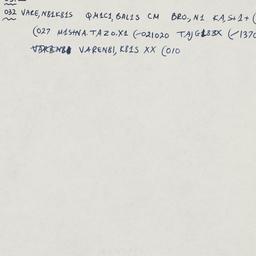 032 VARE,NB1KB1S QM1C1,BAL1S CM BRO,N1 KA,S+1+ (
(027 M1SHNA.TAZO.X1 (-021020 TAJG XX (-1370
VARENB1,KB1S XX (010